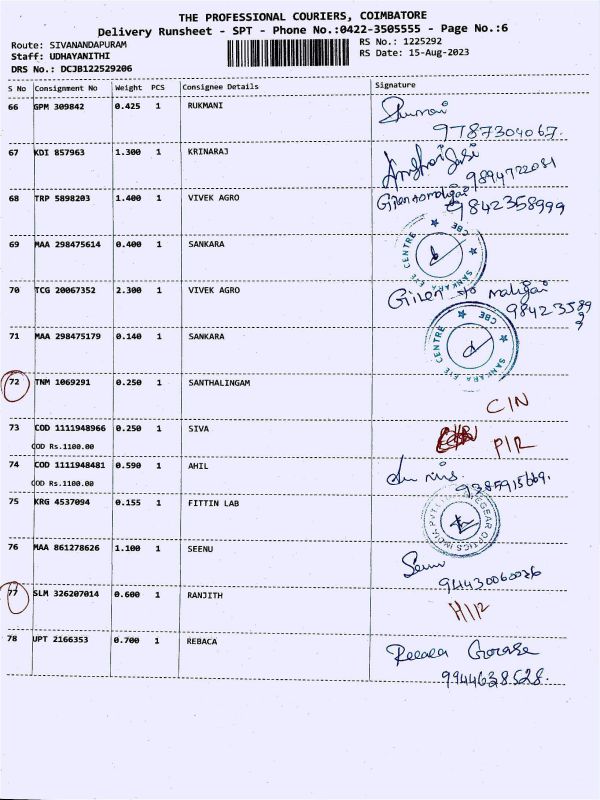 THE PROFESSIONAL COURIERS, COIMBATORE
Delivery Runsheet - SPT - Phone No.:0422-3505555 - Page No.:6
Route: SIVANANDAPURAM
RS No.: 1225292
Staff: UDHAYANITHI
RS Date: 15-Aug-2023
DRS No.: DCJB122529206
S No Consignment No Weight PCS Consignee Details Signature
66 GPM 309842 0.425 1 RUKMANI
9787304067.
67 KDI 857963 1.300 1 KRINARAJ
9894722081
68 TRP 5898203 1.400 1 VIVEK AGRO
9842358999
69 MAA 298475614 0.400 1 SANKARA
SANKARA EYE CENTRE ★ CBE ★
70 TCG 20067352 2.300 1 VIVEK AGRO
Giren sto maligai
71 MAA 298475179 0.140 1 SANKARA
SANKARA EYE CENTRE ★ CBE ★
72 TNM 1069291 0.250 1 SANTHALINGAM
C/N
73 COD 1111948966 0.250 1 SIVA
P/R
COD Rs.1100.00
74 COD 1111948481 0.590 1 AHIL
9385915669.
COD Rs.1100.00
75 KRG 4537094 0.155 1 FITTIN LAB
76 MAA 861278626 1.100 1 SEENU
Seenu
94430060026
77 SLM 326207014 0.600 1 RANJITH
H/R
78 UPT 2166353 0.700 1 REBACA
9944638528.